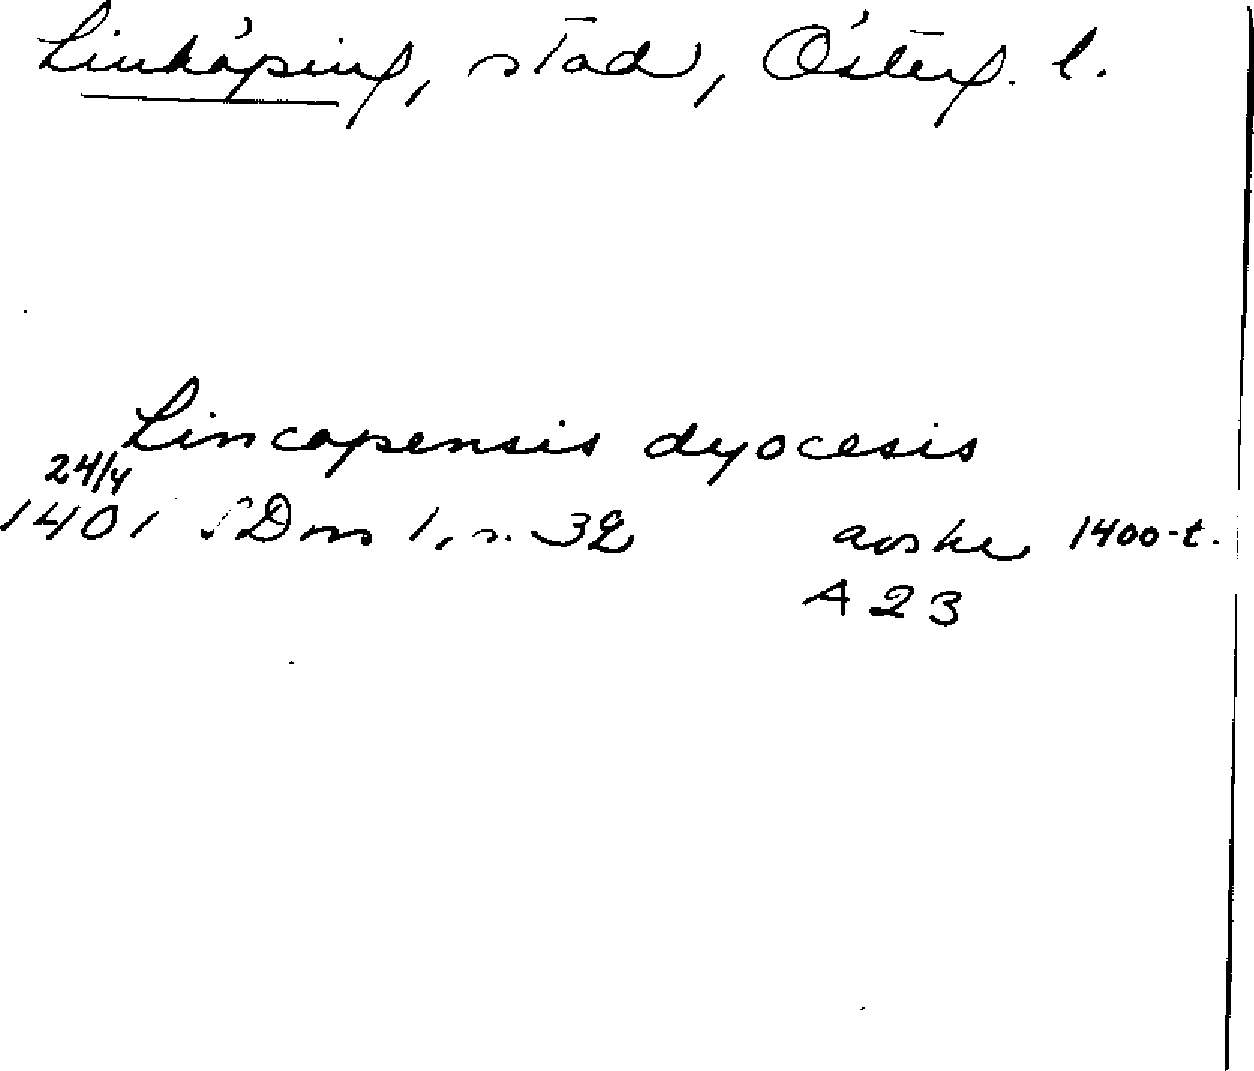 Linköping, stad, Österg. l.
Lincopensis dyocesis
24/4
1401 SDns 1, s. 32 avskr 1400-t.
A 23